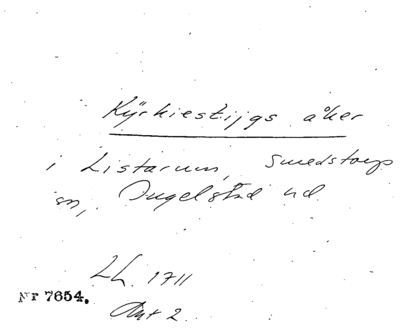 Kyrkiestijgs åker
i Listarum, Smedstorps
sn, Ingelstad hd.
LL. 1711
Akt 2
Nr 7654.